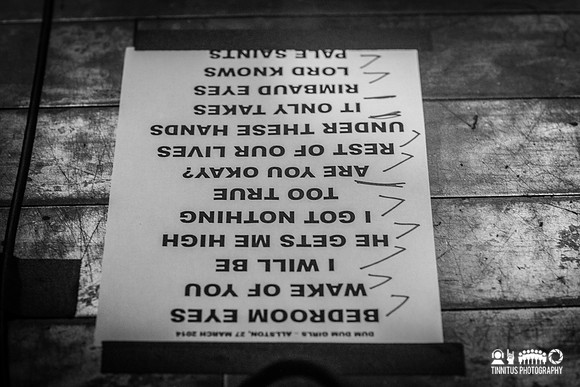 DUM DUM GIRLS - ALLSTON, 27 MARCH 2014
BEDROOM EYES
WAKE OF YOU
I WILL BE
HE GETS ME HIGH
I GOT NOTHING
TOO TRUE
ARE YOU OKAY?
REST OF OUR LIVES
UNDER THESE HANDS
IT ONLY TAKES
RIMBAUD EYES
LORD KNOWS
PALE SAINTS
TINNITUS PHOTOGRAPHY